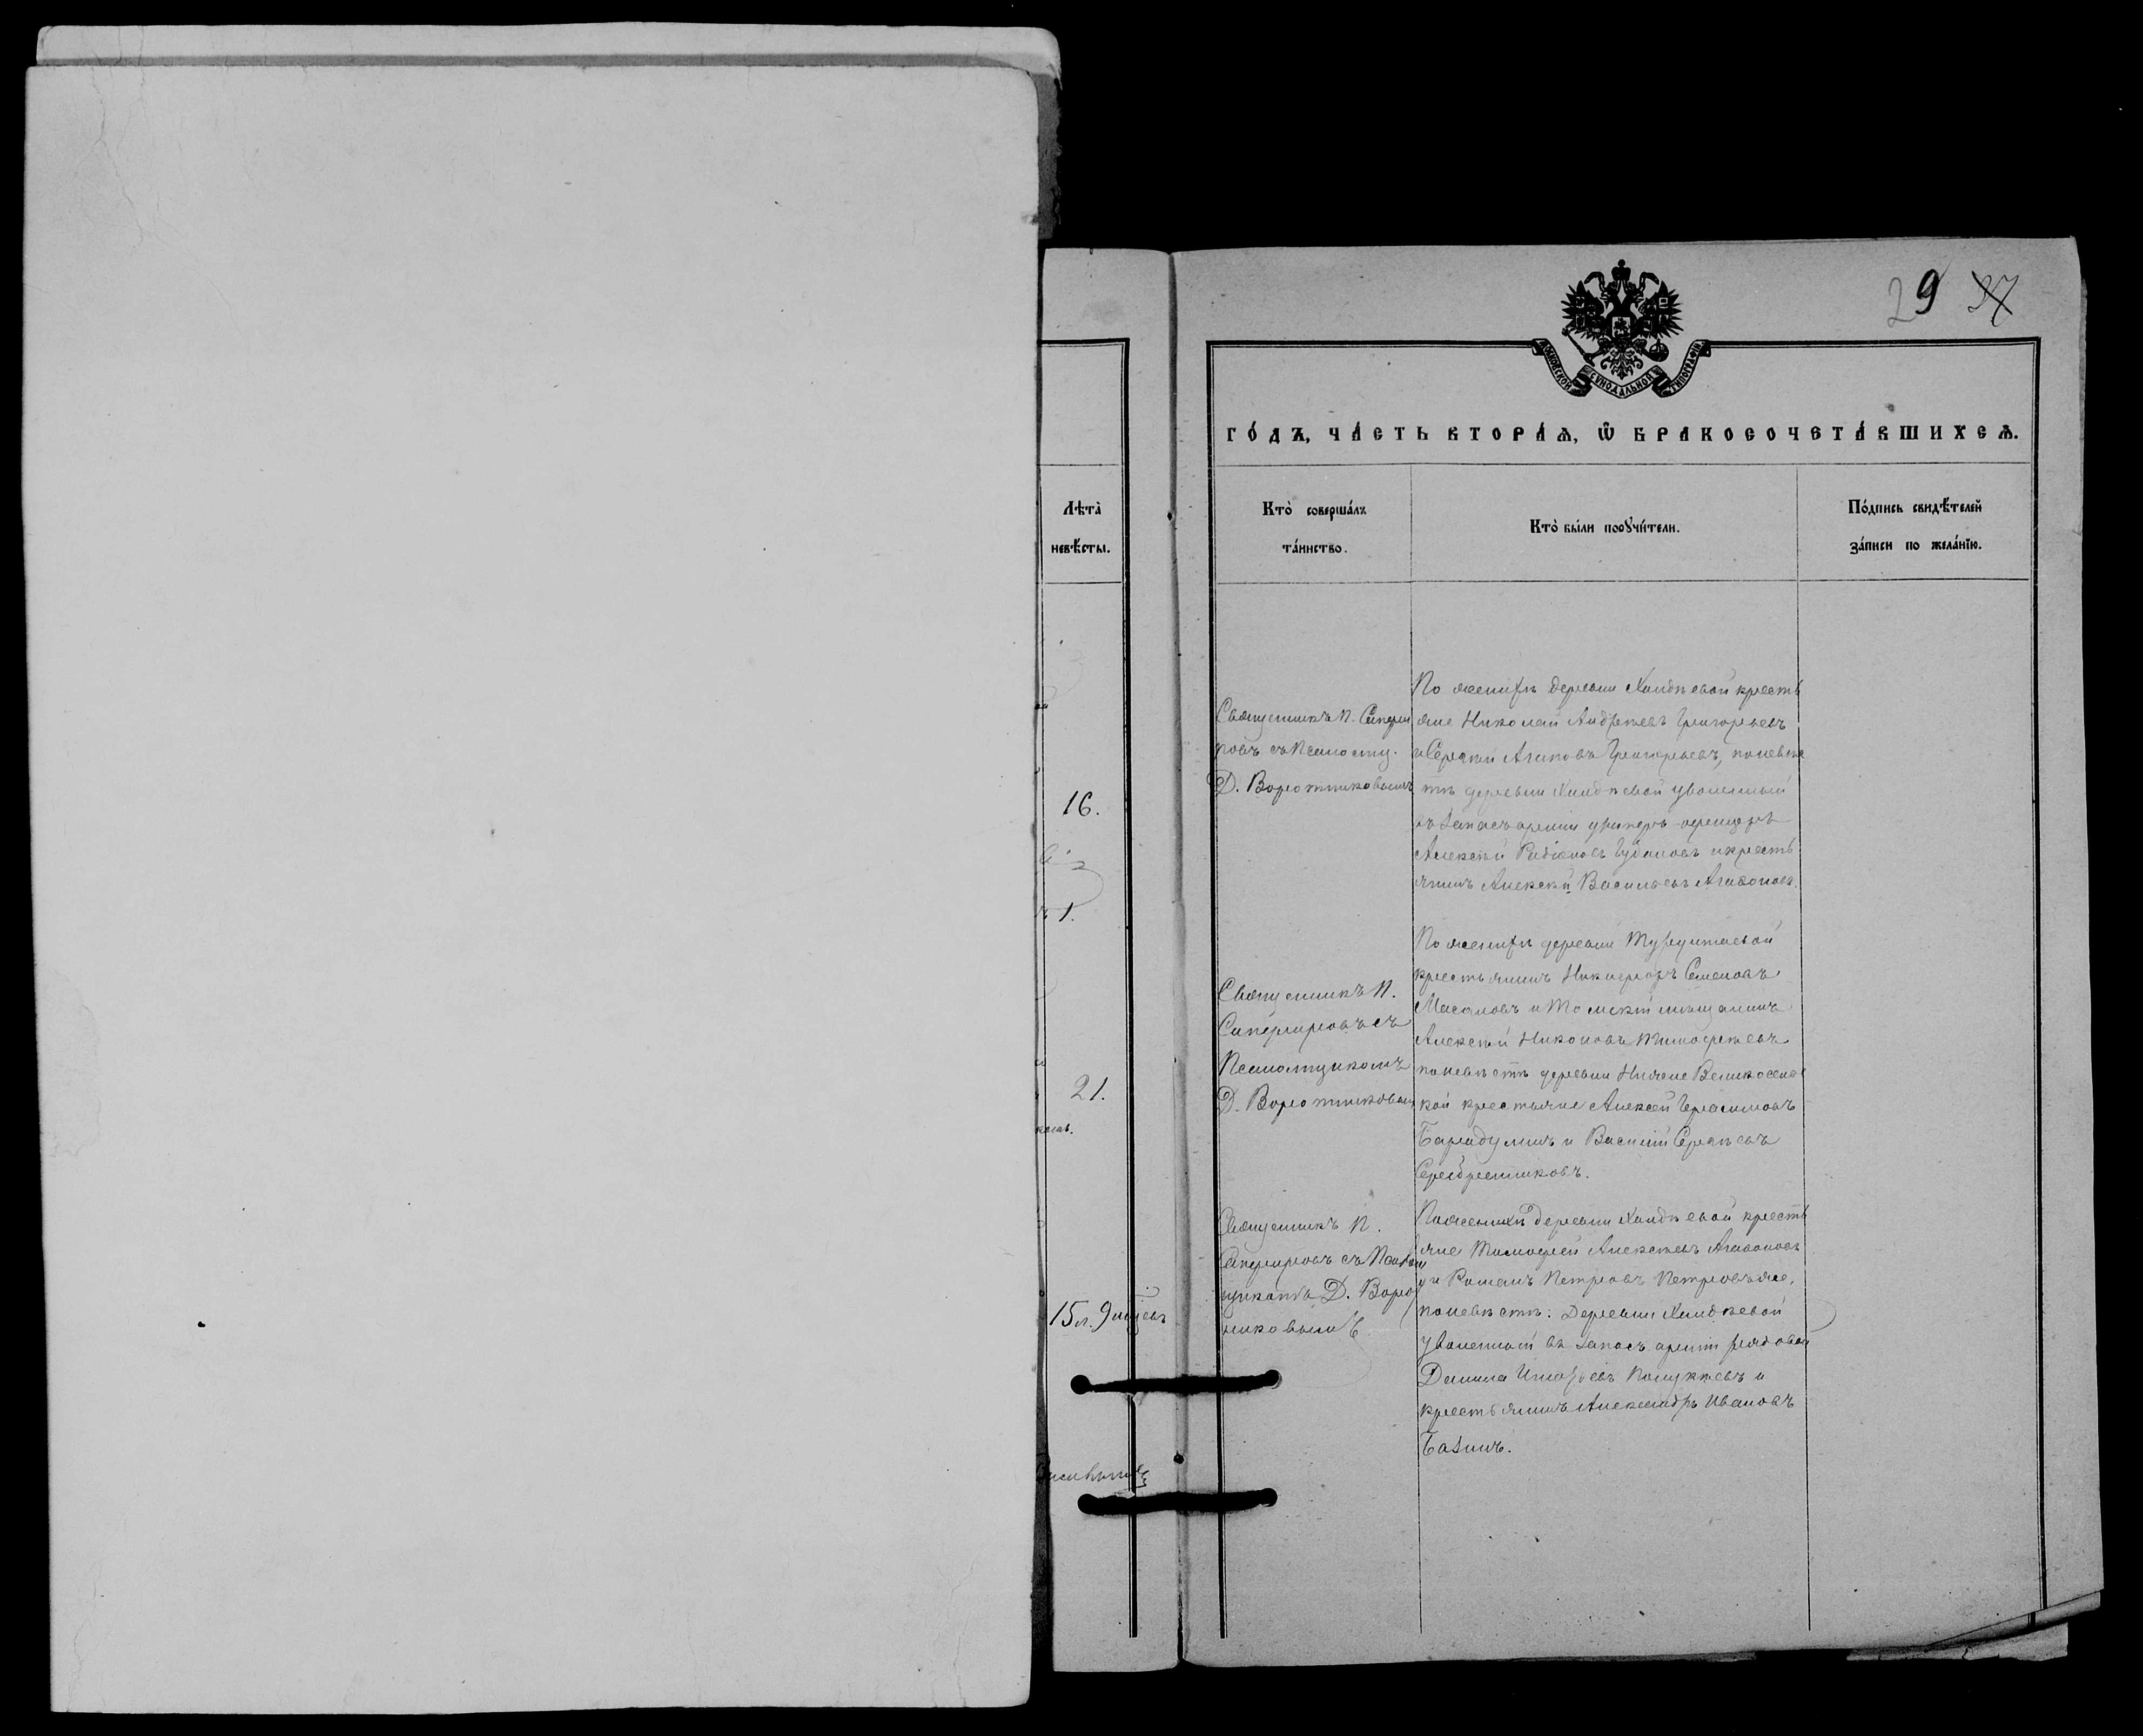 29 37
МОСКОВСКОЙ СѴНОДАЛЬНОЙ ТИПОГРАФІИ
го́дъ, ча́сть втора́ѧ, ѡ҆ бракосочета́вшихсѧ.
Лѣта̀
невѣ́сты.
Кто̀ соверша́лъ
та́инство.
Кто̀ бы́ли порꙋчи́тели.
По́дпись свидѣ́телей
за́писи по жела́нїю.
16.
1.
21.
15 л. 9 мцевъ
Священникъ П.
ровъ съ Псаломщ.
Д. Воротниковымъ
По женихѣ деревни Халдѣевой кресть
яне Николай Андреевъ Григорьевъ
и Сергѣй Агаповъ Григорьевъ, по невѣс
тѣ деревни Халдѣевой уволенный
въ запасъ арміи унтеръ-офицеръ
Алексѣй Родіоновъ и кресть
янинъ Алексѣй Васильевъ Агафоновъ.
Священникъ П.
съ
Псаломщикомъ
Д. Воротниковымъ
По женихѣ деревни Турунтаевой
крестьянинъ Никифоръ Семеновъ
Масаловъ и Томскій мѣщанинъ
Алексѣй Никоновъ Тимофеевъ
по невѣстѣ деревни Нижне Великосель
кой крестьяне Алексей Герасимовъ
Барабулинъ и Василій Сергѣевъ
Серебренниковъ.
Священникъ П.
съ Псалом
щикомъ Д. Ворот
никовымъ
По женихѣ деревни Халдѣевой кресть
яне Тимофей Алексѣевъ Агафоновъ
и Романъ Петровъ Петровъ же,
по невѣстѣ: Деревни Халдѣевой
уволенный въ запасъ арміи рядовой
Данила Игнатьевъ Полуктевъ и
крестьянинъ Александръ Ивановъ
Базинъ.